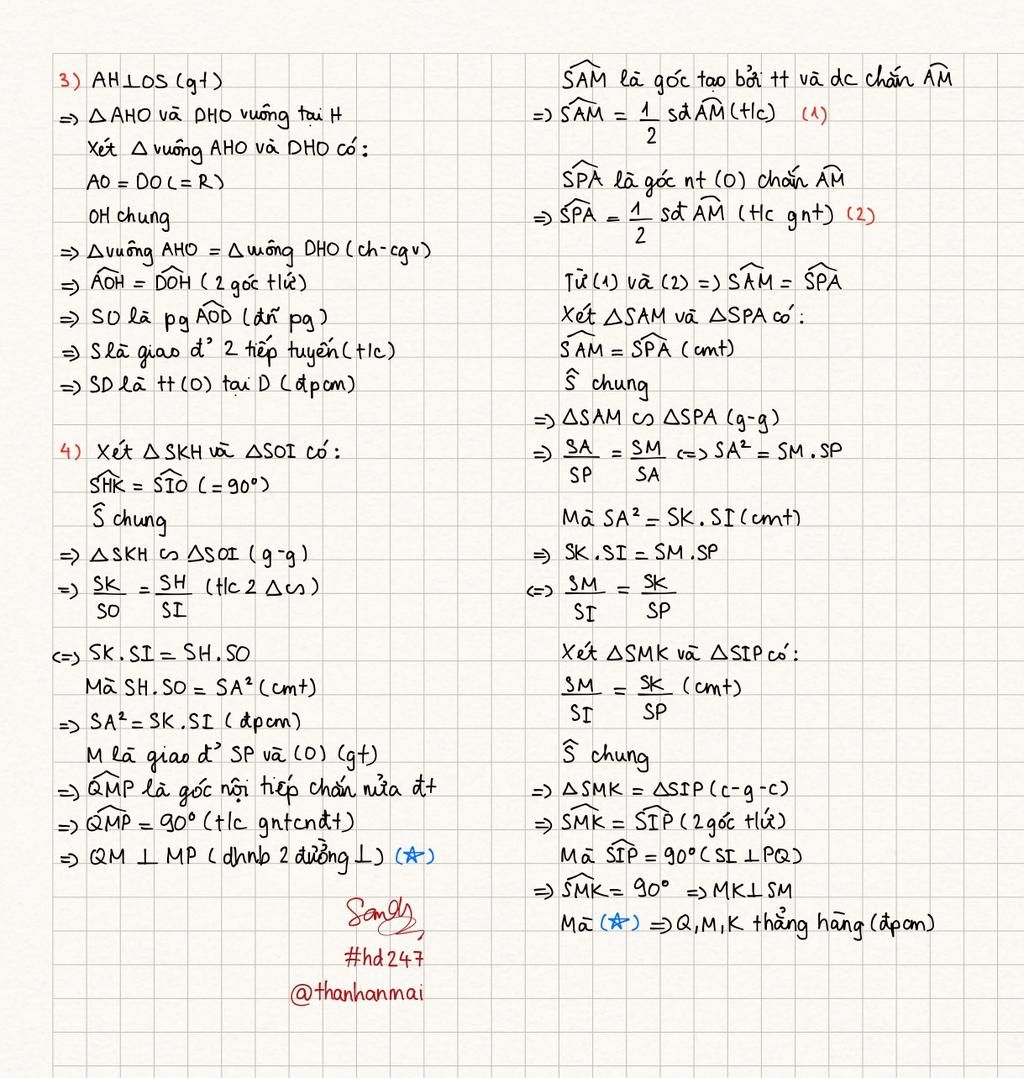 3) AH⊥OS (gt)
=> △AHO và DHO vuông tại H
Xét △ vuông AHO và DHO có:
AO = DO (= R)
OH chung
=> △vuông AHO = △vuông DHO (ch-cgv)
=> \widehat{AOH} = \widehat{DOH} (2 góc t/ứ)
=> SO là pg \widehat{AOD} (đn pg)
=> S là giao đ' 2 tiếp tuyến (t/c)
=> SD là tt (O) tại D (đpcm)
4) Xét △SKH và △SOI có:
\widehat{SHK} = \widehat{SIO} (= 90°)
Ŝ chung
=> △SKH ∽ △SOI (g-g)
=> SK/SO = SH/SI (t/c 2 △∽)
<=> SK.SI = SH.SO
Mà SH.SO = SA² (cmt)
=> SA² = SK.SI (đpcm)
M là giao đ' SP và (O) (gt)
=> \widehat{QMP} là góc nội tiếp chắn nửa đt
=> \widehat{QMP} = 90° (t/c gntcnđt)
=> QM ⊥ MP (dhnb 2 đường ⊥) (☆)
Sandy
#hd247
@thanhanmai
\widehat{SAM} là góc tạo bởi tt và dc chắn \widehat{AM}
=> \widehat{SAM} = 1/2 sđ \widehat{AM} (t/c) (1)
\widehat{SPA} là góc nt (O) chắn \widehat{AM}
=> \widehat{SPA} = 1/2 sđ \widehat{AM} (t/c gnt) (2)
Từ (1) và (2) => \widehat{SAM} = \widehat{SPA}
Xét △SAM và △SPA có:
\widehat{SAM} = \widehat{SPA} (cmt)
Ŝ chung
=> △SAM ∽ △SPA (g-g)
=> SA/SP = SM/SA <=> SA² = SM.SP
Mà SA² = SK.SI (cmt)
=> SK.SI = SM.SP
<=> SM/SI = SK/SP
Xét △SMK và △SIP có:
SM/SI = SK/SP (cmt)
Ŝ chung
=> △SMK = △SIP (c-g-c)
=> \widehat{SMK} = \widehat{SIP} (2 góc t/ứ)
Mà \widehat{SIP} = 90° (SI ⊥ PQ)
=> \widehat{SMK} = 90° => MK⊥SM
Mà (☆) => Q,M,K thẳng hàng (đpcm)